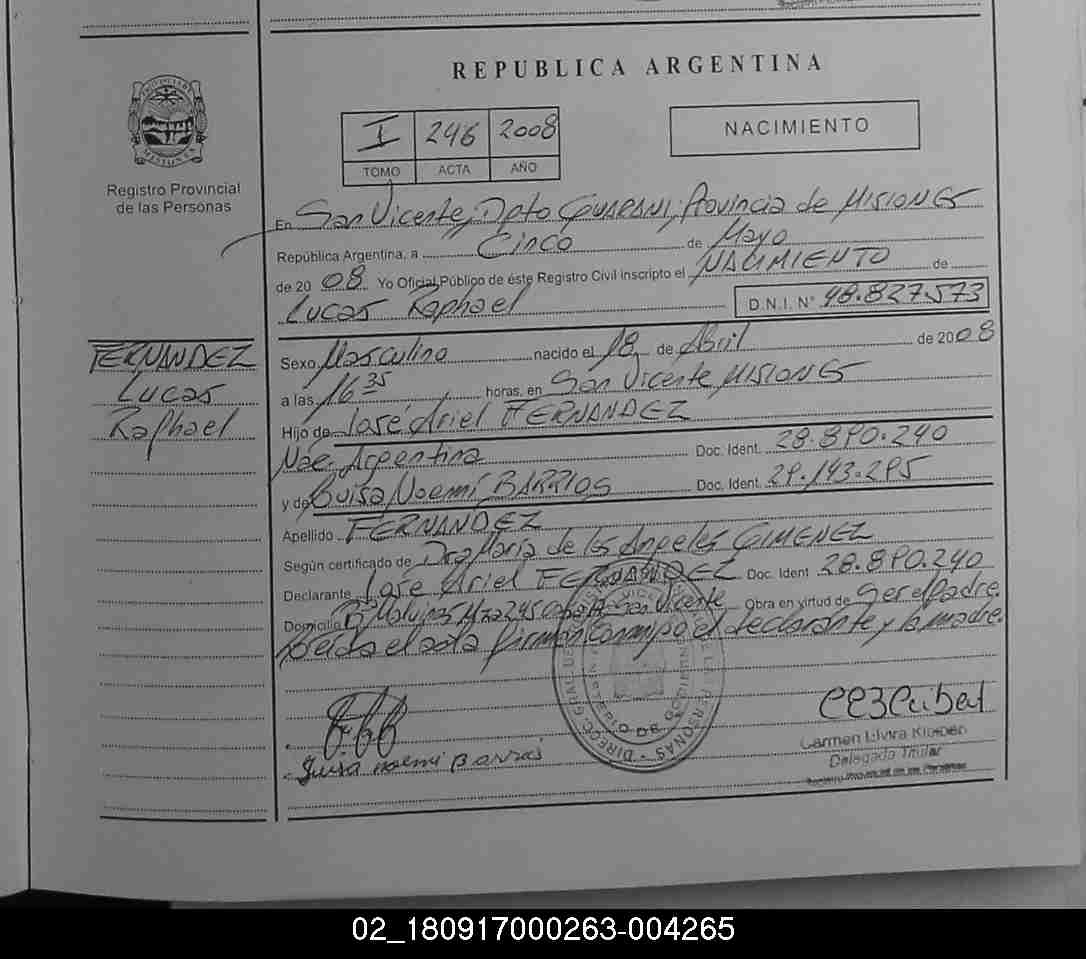 REPUBLICA ARGENTINA
PROVINCIA DE MISIONES
Registro Provincial
de las Personas
I 246 2008
TOMO ACTA AÑO
NACIMIENTO
En San Vicente, Dpto GUARANI, Provincia de MISIONES
República Argentina, a Cinco de Mayo
de 20 08 Yo Oficial Público de éste Registro Civil inscripto el NACIMIENTO de
Lucas Raphael D.N.I. N° 48.827.573
FERNANDEZ
Lucas
Raphael
Sexo Masculino nacido el 18 de Abril de 2008
a las 16 35 horas, en San Vicente MISIONES
Hijo de José Ariel FERNANDEZ
Nac. Argentina Doc. Ident. 28.890.240
y de Luisa Noemí BARRIOS Doc. Ident. 29.143.295
Apellido FERNANDEZ
Según certificado de Dra María de los Angeles GIMENEZ
Declarante José Ariel FERNANDEZ Doc. Ident 28.890.240
Domicilio Bº Malvinas Mza 245 San Vicente Obra en virtud de Ser el Padre.
Leída el acta firman conmigo el declarante y la madre.
Luisa noemi Barrios
Carmen Elvira
Delegada Titular
Registro Provincial de las Personas
02_180917000263-004265